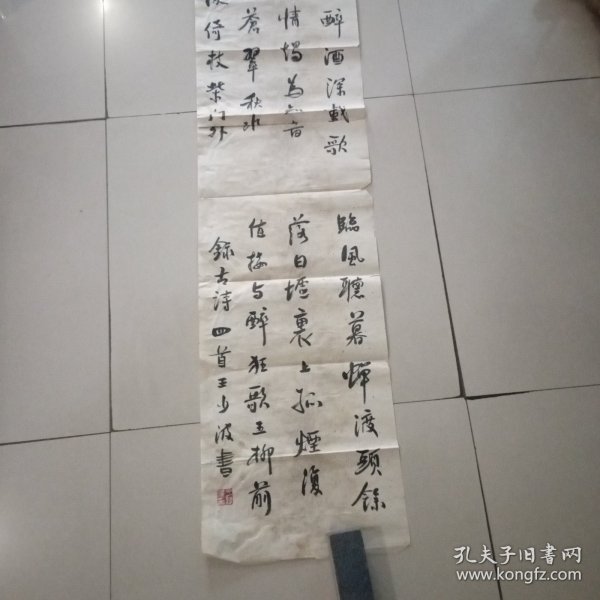 醉酒深戲歌
情惕為知音
蒼翠秋水
倚杖柴门外
臨風聽暮蟬渡頭餘
落日墟裏上孤煙復
值接与醉狂歌五柳前
錄古詩四首王少波書
孔夫子旧書网
www.kongfz.com